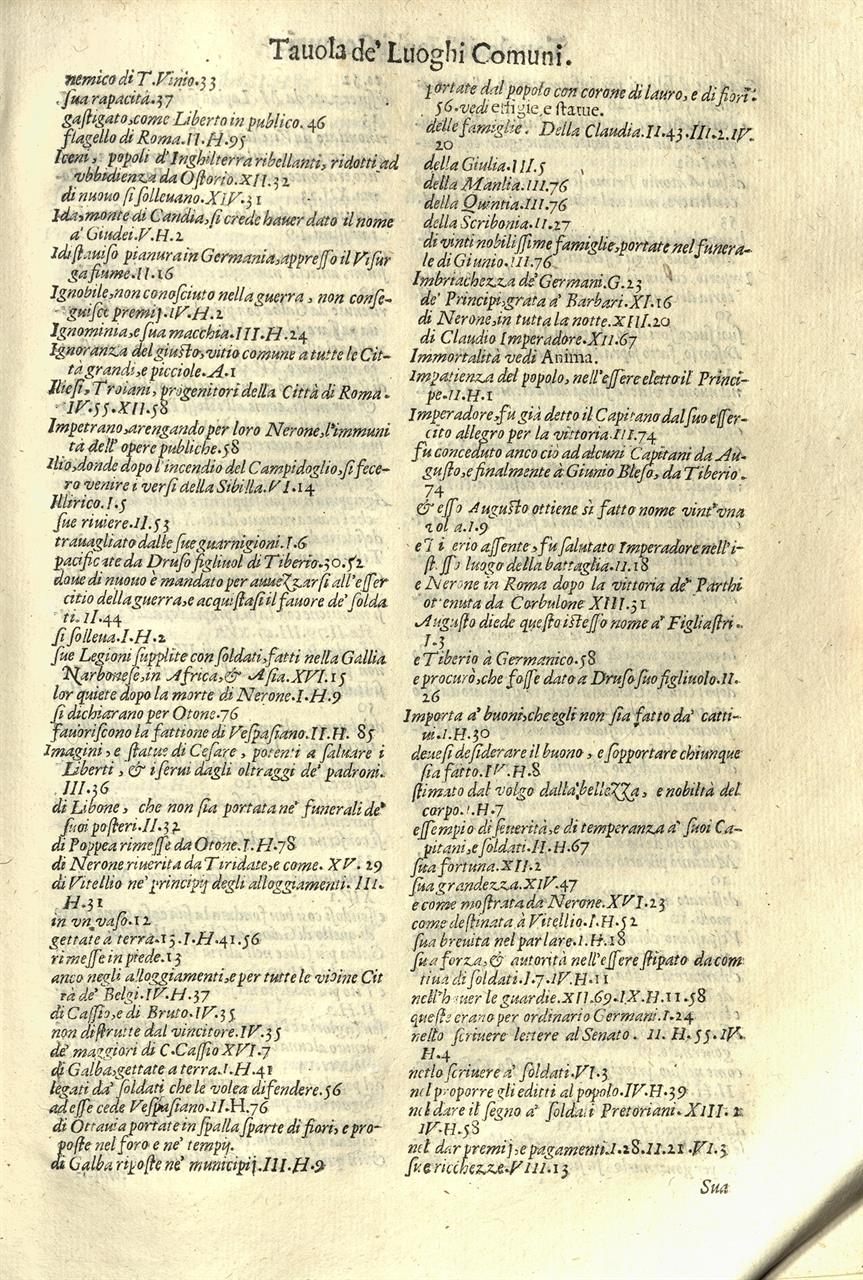 Tauola de' Luoghi Comuni.
nemico di T. Vinio.33
sua rapacità.37
gastigato,come Liberto in publico. 46
flagello di Roma.II.H.95
Iceni, popoli d'Inghilterra ribellanti, ridotti ad
vbbidienza da Ostorio.XII.32
di nuovo si solleuano.XIV.31
Ida,monte di Candia,si crede hauer dato il nome
a' Giudei.V.H.2
Idistauiso pianura in Germania,appresso il Visur
ga fiume.II.16
Ignobile,non conosciuto nella guerra, non conse-
guisce premij.IV.H.2
Ignominia,e sua macchia.III.H.24
Ignoranza del giusto,vitio comune a tutte le Cit-
tà grandi,e picciole.A.1
Iliesi, Troiani, progenitori della Città di Roma.
IV.55.XII.58
Impetrano,arengando per loro Nerone,l'immuni
tà dell'opere publiche.58
Ilio,donde dopo l'incendio del Campidoglio,si fece-
ro venire i versi della Sibilla.VI.14
Illirico.I.5
sue riuiere.II.53
trauagliato dalle sue guarnigioni.I.6
pacificate da Druso figliuol di Tiberio.30.52
doue di nuouo è mandato per auuezzarsi all'esser
citio della guerra,e acquistasi il fauore de' solda
ti.II.44
si solleua.I.H.2
sue Legioni supplite con soldati,fatti nella Gallia
Narbonese,in Africa,& Asia.XVI.15
lor quiete dopo la morte di Nerone.I.H.9
si dichiarano per Otone.76
fauoriscono la fattione di Vespasiano.II.H. 85
Imagini, e statue di Cesare, potenti a saluare i
Liberti, & i serui dagli oltraggi de' padroni.
III.36
di Libone, che non sia portata ne' funerali de'
suoi posteri.II.32
di Poppea rimesse da Otone.I.H.78
di Nerone riuerita da Tiridate,e come. XV. 29
di Vitellio ne' principij degli alloggiamenti. III.
H.31
in vn vaso.12
gettate à terra.13.I.H.41.56
rimesse in piede.13
anco negli alloggiamenti,e per tutte le vicine Cit
tà de' Belgi.IV.H.37
di Cassio,e di Bruto.IV.35
non distrutte dal vincitore.IV.35
de' maggiori di C.Cassio XVI.7
di Galba,gettate a terra.I.H.41
legati da' soldati che le volea difendere.56
ad esse cede Vespasiano.II.H.76
di Ottauia portate in spalla sparte di fiori,e pro-
poste nel foro e ne' tempij.
di Galba riposte ne' municipij.III.H.9
portate dal popolo con corone di lauro, e di fiori.
56.vedi effigie,e statue.
delle famiglie. Della Claudia.II.43.III.2.IV.
20
della Giulia.III.5
della Manlia.III.76
della Quintia.III.76
della Scribonia.II.27
di vinti nobilissime famiglie,portate nel funera-
le di Giunio.III.76
Imbriachezza de' Germani.G.23
de' Principi,grata a' Barbari.XI.16
di Nerone,in tutta la notte.XIII.20
di Claudio Imperadore.XII.67
Immortalità vedi Anima.
Impatienza del popolo, nell'essere eletto il Princi-
pe.II.H.1
Imperadore,fu già detto il Capitano dal suo esser-
cito allegro per la vittoria.III.74
fu conceduto anco ciò ad alcuni Capitani da Au-
gusto,e finalmente à Giunio Bleso, da Tiberio.
74
& esso Augusto ottiene sì fatto nome vint'vna
a.I.9
e erio assente, fu salutato Imperadore nell'i-
st sso luogo della battaglia.II.18
e Nerone in Roma dopo la vittoria de' Parthi
ottenuta da Corbulone XIII.31
Augusto diede questo istesso nome a' Figliastri.
I.3
e Tiberio à Germanico.58
e procurò,che fosse dato a Druso suo figliuolo.II.
26
Importa a' buoni,che egli non sia fatto da' catti-
ui.I.H.30
deuesi desiderare il buono, e sopportare chiunque
sia fatto.IV.H.8
stimato dal volgo dalla bellezza, e nobiltà del
corpo.I.H.7
essempio di seuerità,e di temperanza a' suoi Ca-
pitani,e soldati.II.H.67
sua fortuna.XII.2
sua grandezza.XIV.47
e come mostrata da Nerone.XVI.23
come destinata à Vitellio.I.H.52
sua breuità nel parlare.I.H.18
sua forza,& autorità nell'essere stipato da com
tiua di soldati.I.7.IV.H.11
nell'hauer le guardie.XII.69.IX.H.11.58
queste erano per ordinario Germani.I.24
nello scriuere lettere al Senato. II. H. 55.IV.
H.4
nello scriuere a' soldati.VI.3
nel proporre gli editti al popolo.IV.H.39
nel dare il segno a' soldati Pretoriani. XIII. 2
IV.H.58
nel dar premij,e pagamenti.I.28.II.21.VI.3
sue ricchezze.VIII.13
Sua